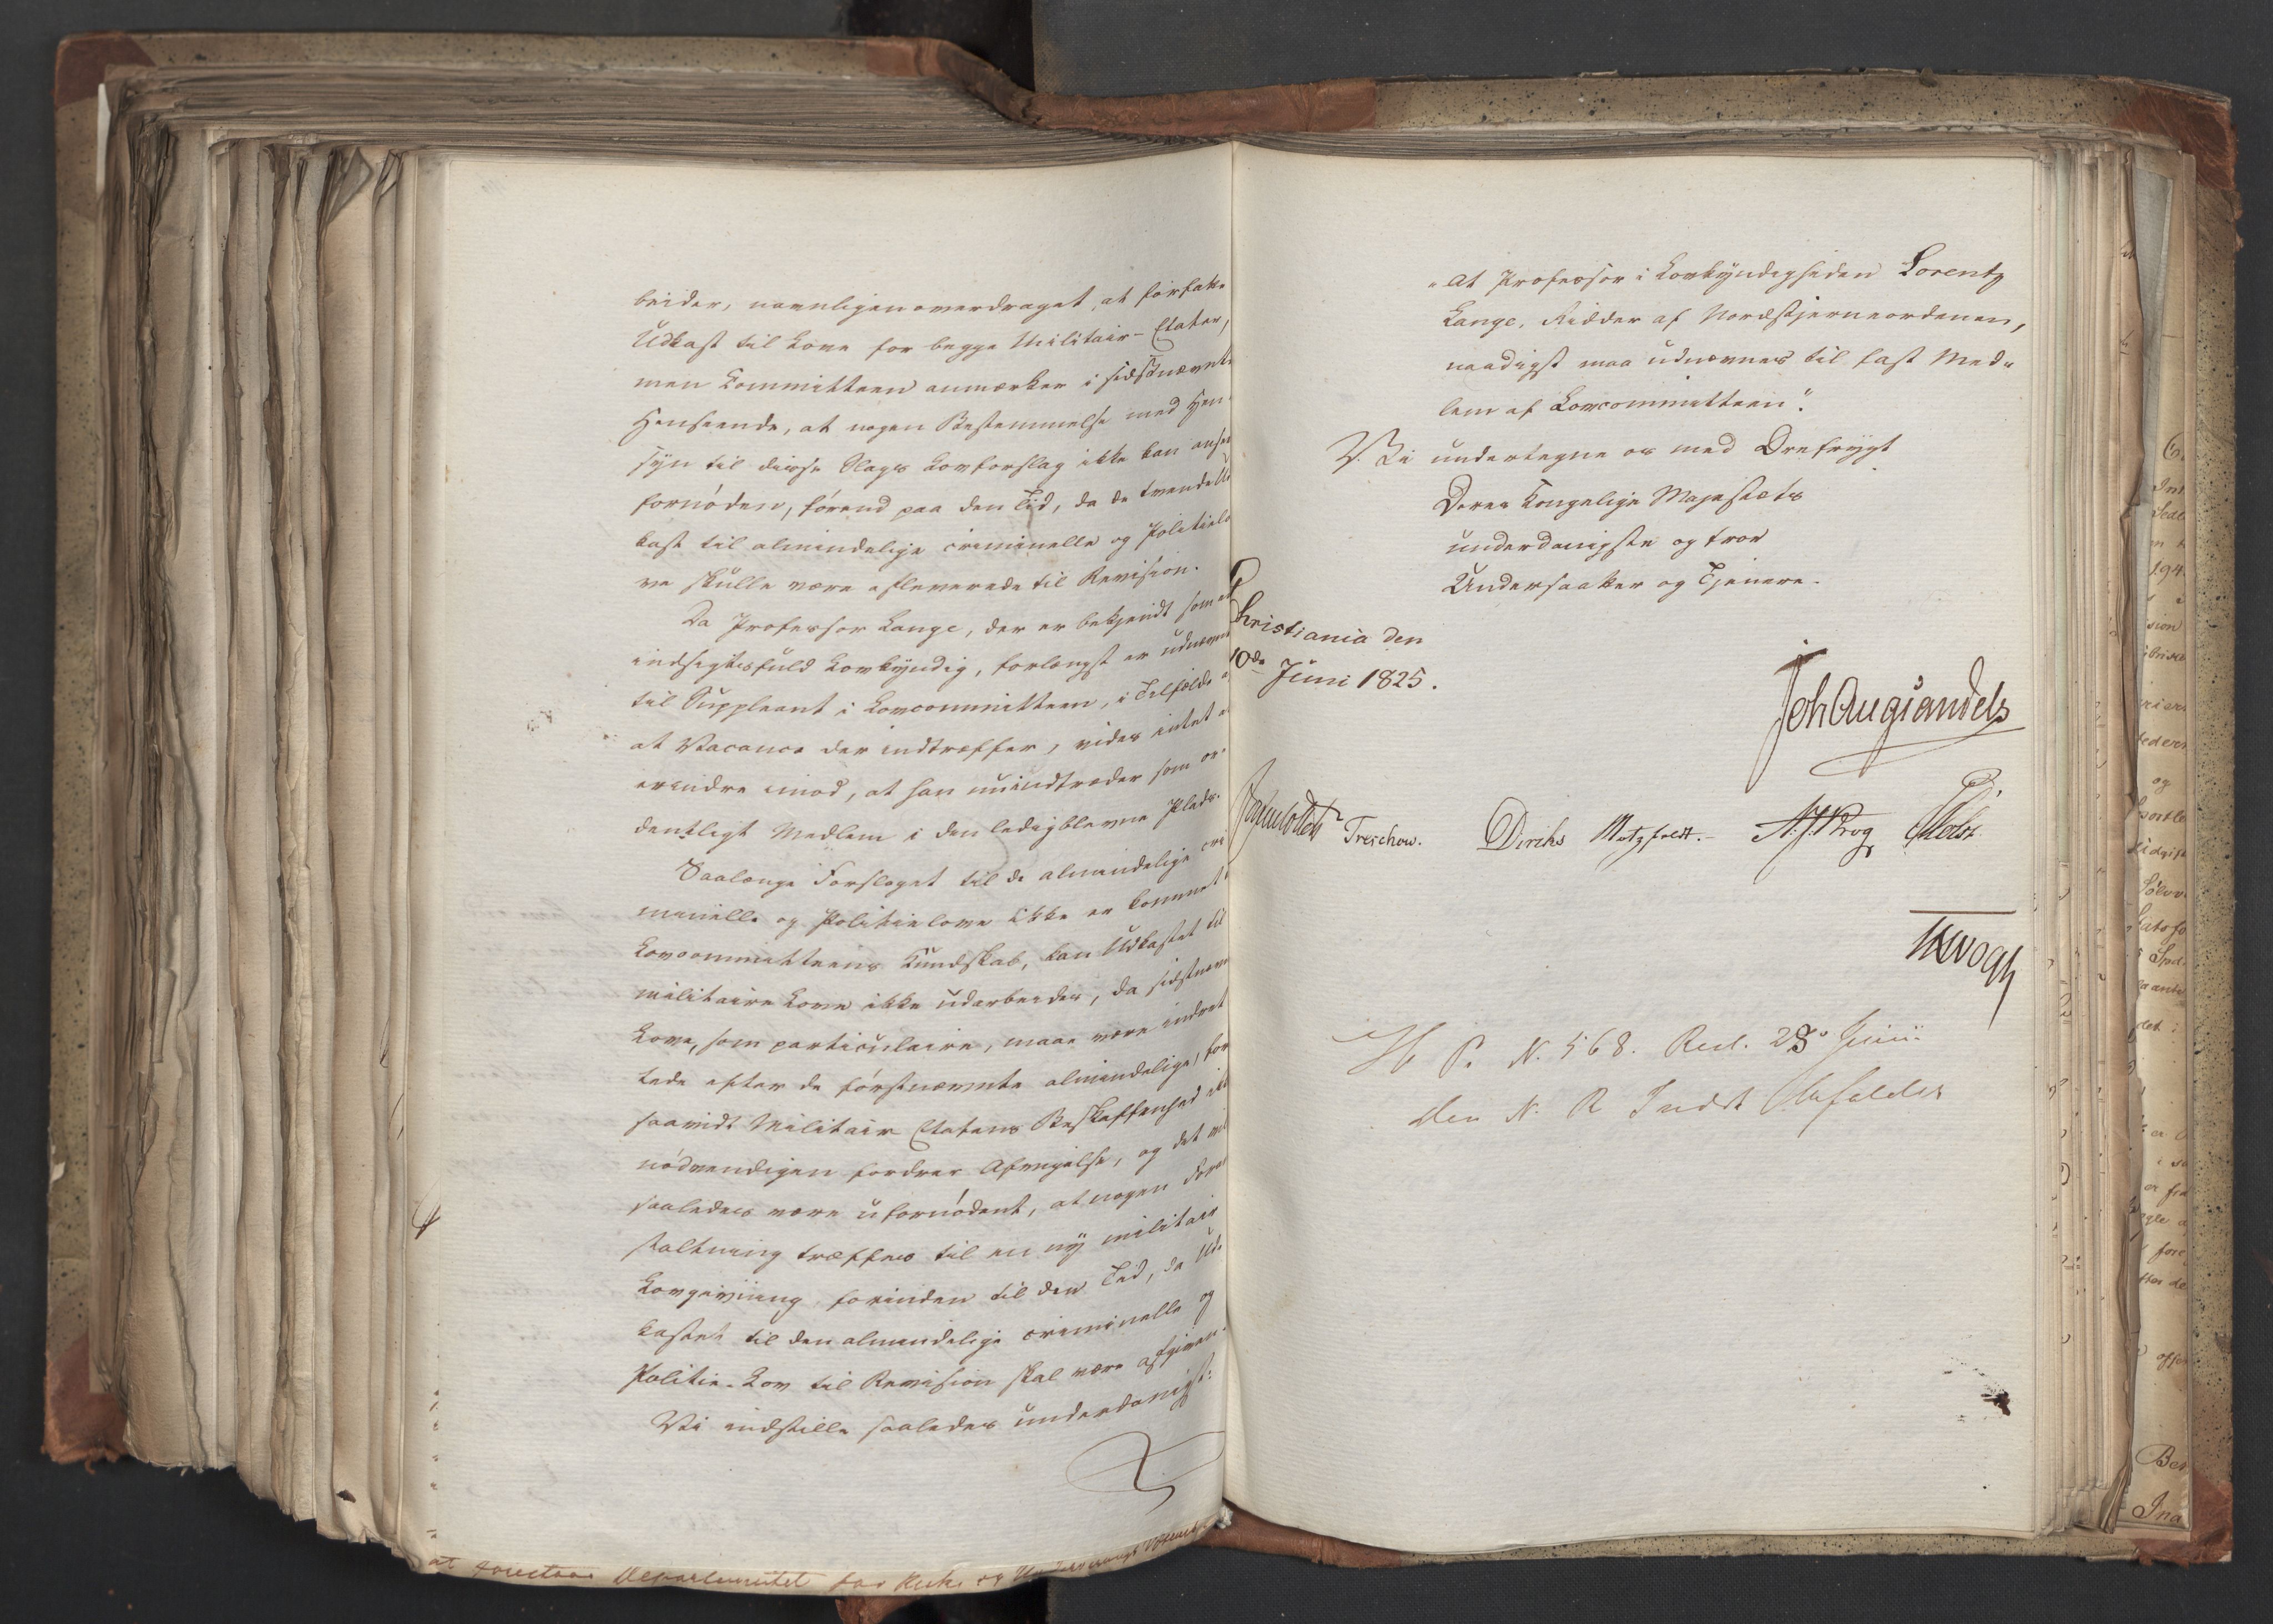 beider, navnligen overdraget, at forfatte
Udkast til Love for begge Militair-Etater,
men Committeen anmærker i sidstnævnte
Henseende, at nogen Bestemmelse med Hen-
syn til disse Slags Lovforslag ikke kan ansees
fornöden, förend paa den Tid, da de tvende Ud
kast til almindelige criminelle og Politielo
ve skulle være afleverede til Revision.
Da Professor Lange, der er bekjendt som en
indsigtsfuld Lovkyndig, forlængst er udnævnt
til Suppleant i Lovcommitteen, i Tilfælde
at Vacance der indtræffer, vides intet at
erindre imod, at han nu indtræder som or-
dentligt Medlem i den ledigblevne Plads.
Saalænge Forslaget til de almindelige cri
minelle og Politielove ikke er kommet til
Lovcommitteens Kundskab, kan Udkastet til
militaire Love ikke udarbeides, da sidstnævnte
Love, som particulaire, maae være indret
tede efter de förstnævnte almindelige, for
saavidt Militair Etatens Beskaffenhed ikke
nödvendigen fordrer Afvigelse, og det vil
saaledes være ufornödent, at nogen Foran
staltning træffes til en ny militair
Lovgivning, forinden til den Tid, da Ud-
kastet til den almindelige criminelle og
Politie-Lov til Revision skal være afgiven.
Vi indstille saaledes underdanigst:
at foretage Departementet for Kirke og Underviisnings Væsenet
"At Professor i Lovkyndigheden Lorentz
Lange, Ridder af Nordstjerneordenen,
naadigst maa udnævnes til fast Med-
lem af Lovcommitteen".
Vi undertegne os med Ærefrygt
Deres Kongelige Majestæts
underdanigste og troe
Undersaatter og Tjenere.
Christiania den
10de Juni 1825.
Joh Aug Sandels
Sommerhielm Treschow. Diriks Motzfeldt. A. J. Krog Holst
JHVogt
H P. N. 568. Resl. 28 Junii
den N. R Indst bifaldes